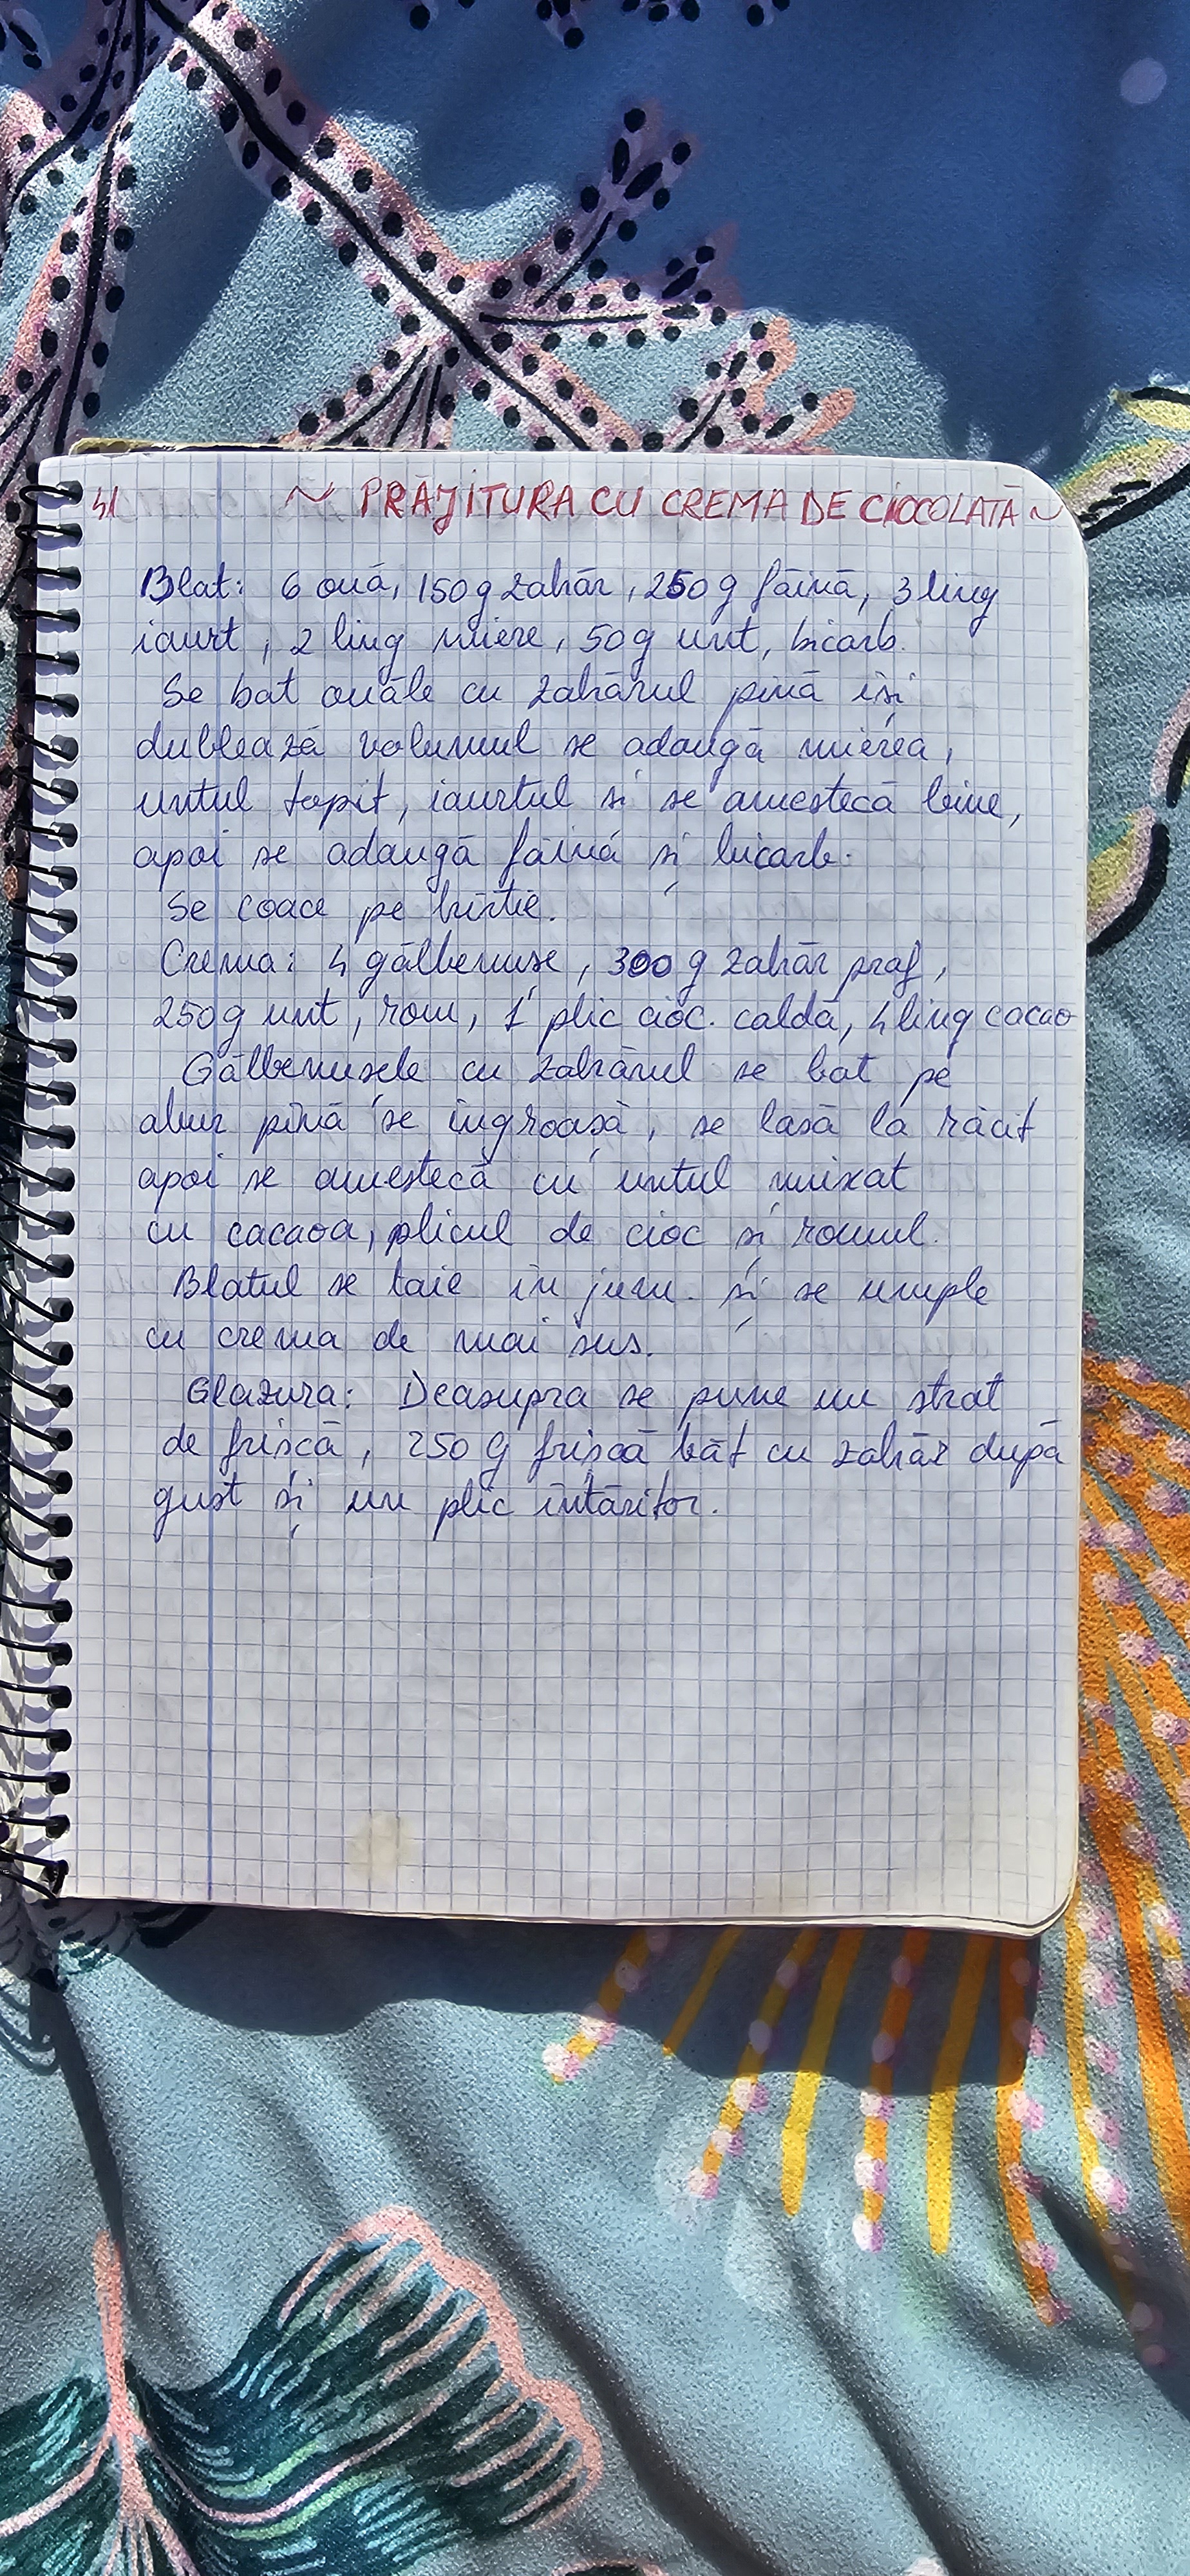 41 ~ PRĂJITURA CU CREMA DE CIOCOLATĂ ~
Blat: 6 ouă, 150 g zahăr, 250 g făină, 3 ling
iaurt, 2 ling miere, 50 g unt, bicarb.
Se bat ouăle cu zahărul pînă își
dublează volumul se adaugă mierea,
untul topit, iaurtul și se amestecă bine,
apoi se adaugă făină și bicarb.
Se coace pe hîrtie.
Crema: 4 gălbenușe, 300 g zahăr praf,
250 g unt, rom, 1 plic cioc. caldă, 4 ling cacao
Gălbenușele cu zahărul se bat pe
abur pînă se îngroașă, se lasă la răcit
apoi se amestecă cu untul mixat
cu cacaoa, plicul de cioc și romul.
Blatul se taie în jum. și se umple
cu crema de mai sus.
Glazura: Deasupra se pune un strat
de frișcă, 250 g frișcă băt cu zahăr după
gust și un plic întăritor.